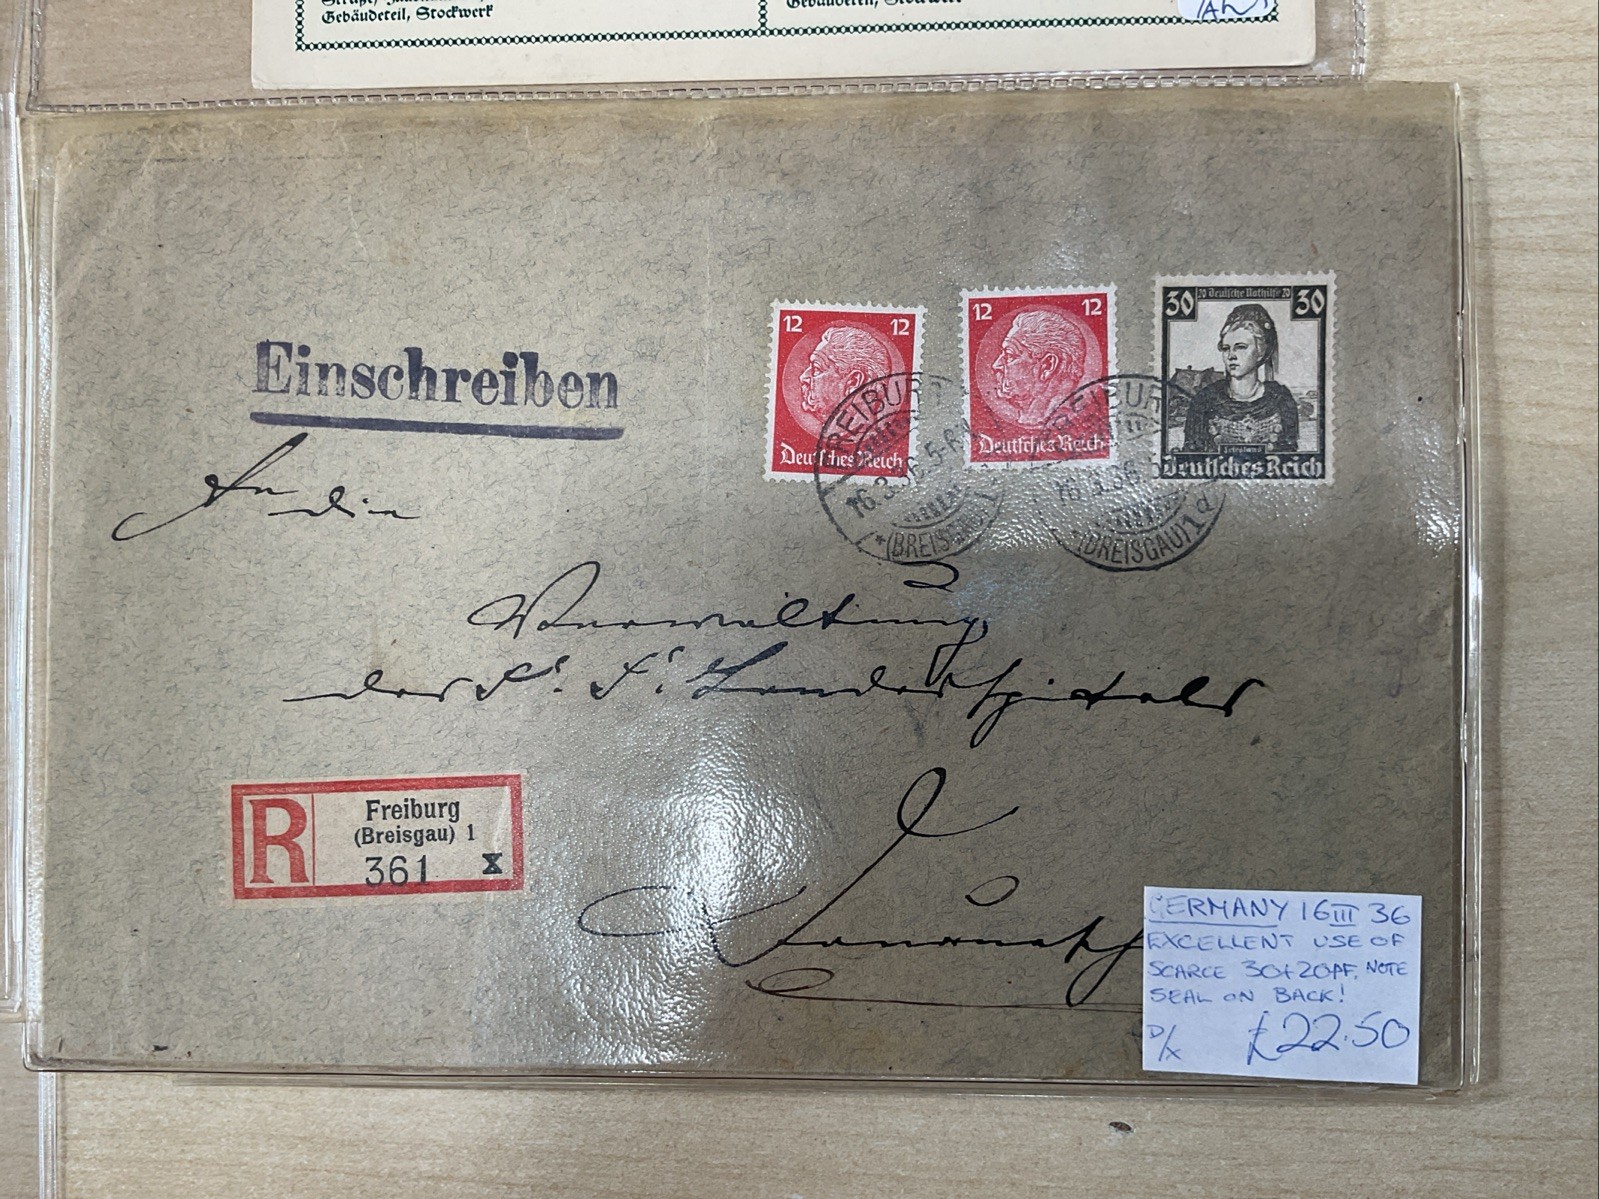 Gebäudeteil, Stockwerk
Einschreiben
12 12
Deutsches Reich
12 12
Deutsches Reich
30 20 Deutsche Nothilfe 20 30
Deutsches Reich
FREIBURG
16.3.36.5-6
* (BREISGAU) 1
FREIBURG
16.3.36
(BREISGAU) 1 d
An die
Verwaltung
des F. F. Landesspitals
R Freiburg
(Breisgau) 1
361 X
GERMANY 16 III 36
EXCELLENT USE OF
SCARCE 30+20PF. NOTE
SEAL ON BACK!
D/X £22.50